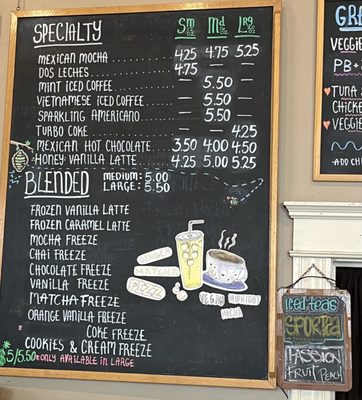 SPECIALTY Sm Md Lrg
MEXICAN MOCHA 4.25 4.75 5.25
DOS LECHES 4.75 — —
MINT ICED COFFEE — 5.50 —
VIETNAMESE ICED COFFEE — 5.50 —
SPARKLING AMERICANO — 5.50 —
TURBO COKE — — 4.25
MEXICAN HOT CHOCOLATE 3.50 4.00 4.50
HONEY VANILLA LATTE 4.25 5.00 5.25
BLENDED MEDIUM: 5.00
LARGE: 5.50
FROZEN VANILLA LATTE
FROZEN CARAMEL LATTE
MOCHA FREEZE
CHAI FREEZE
CHOCOLATE FREEZE
VANILLA FREEZE
MATCHA FREEZE
ORANGE VANILLA FREEZE
COKE FREEZE
COOKIES & CREAM FREEZE
$5/5.50 * ONLY AVAILABLE IN LARGE
GINGER
MATCHA
FREEZE
MIDNIGHT
GRA
VEGGIE
PB
TUNA
CHICKE
VEGGIE
ICED TEAS
PASSION
FRUIT PEACH